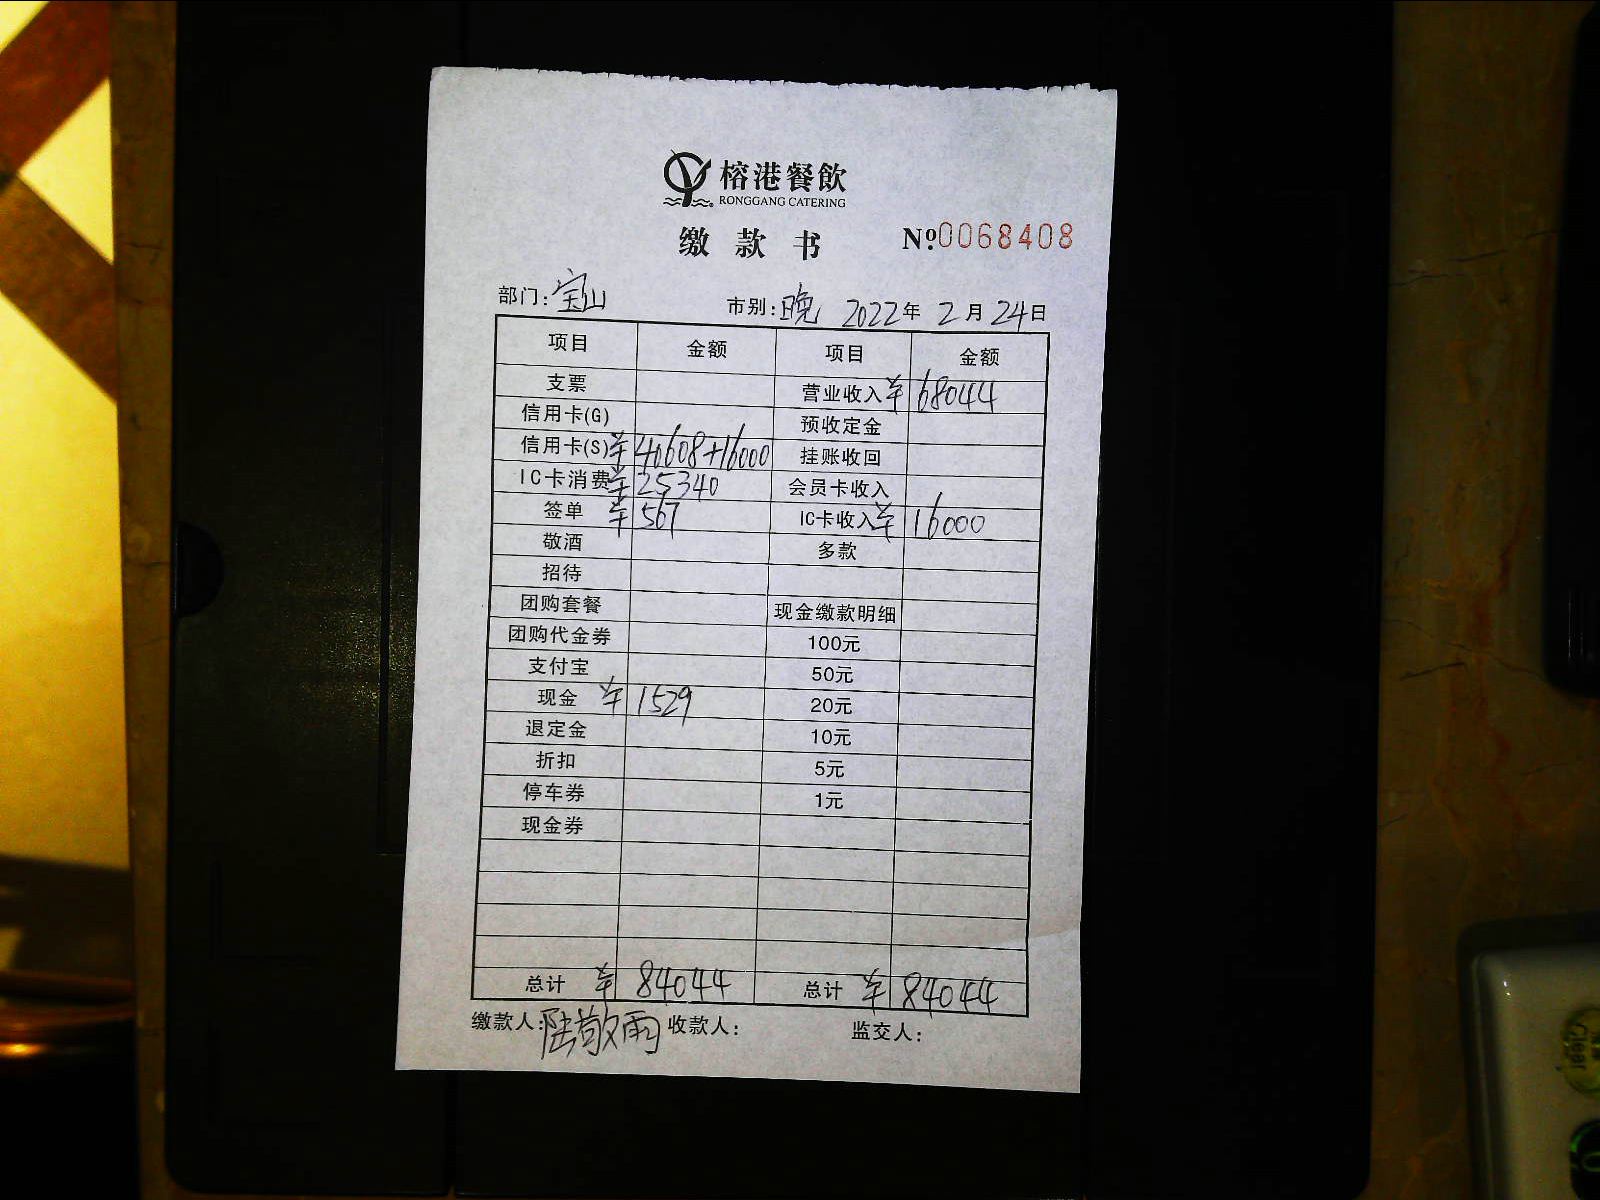 榕港餐飲
RONGGANG CATERING
缴款书 No.0068408
部门:宝山 市别:晚 2022年2月24日
项目 金额 项目 金额
支票 营业收入 ¥68044
信用卡(G) 预收定金
信用卡(S) ¥40608+16000 挂账收回
IC卡消费 ¥25340 会员卡收入
签单 ¥567 IC卡收入 ¥16000
敬酒 多款
招待
团购套餐 现金缴款明细
团购代金券 100元
支付宝 50元
现金 ¥1529 20元
退定金 10元
折扣 5元
停车券 1元
现金券
总计 ¥84044 总计 ¥84044
缴款人:陆敬雨 收款人: 监交人:
Clear